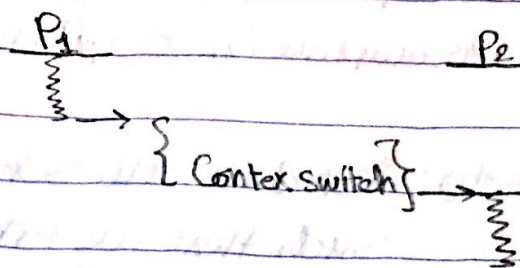 P1 P2
{ Contex. switch }